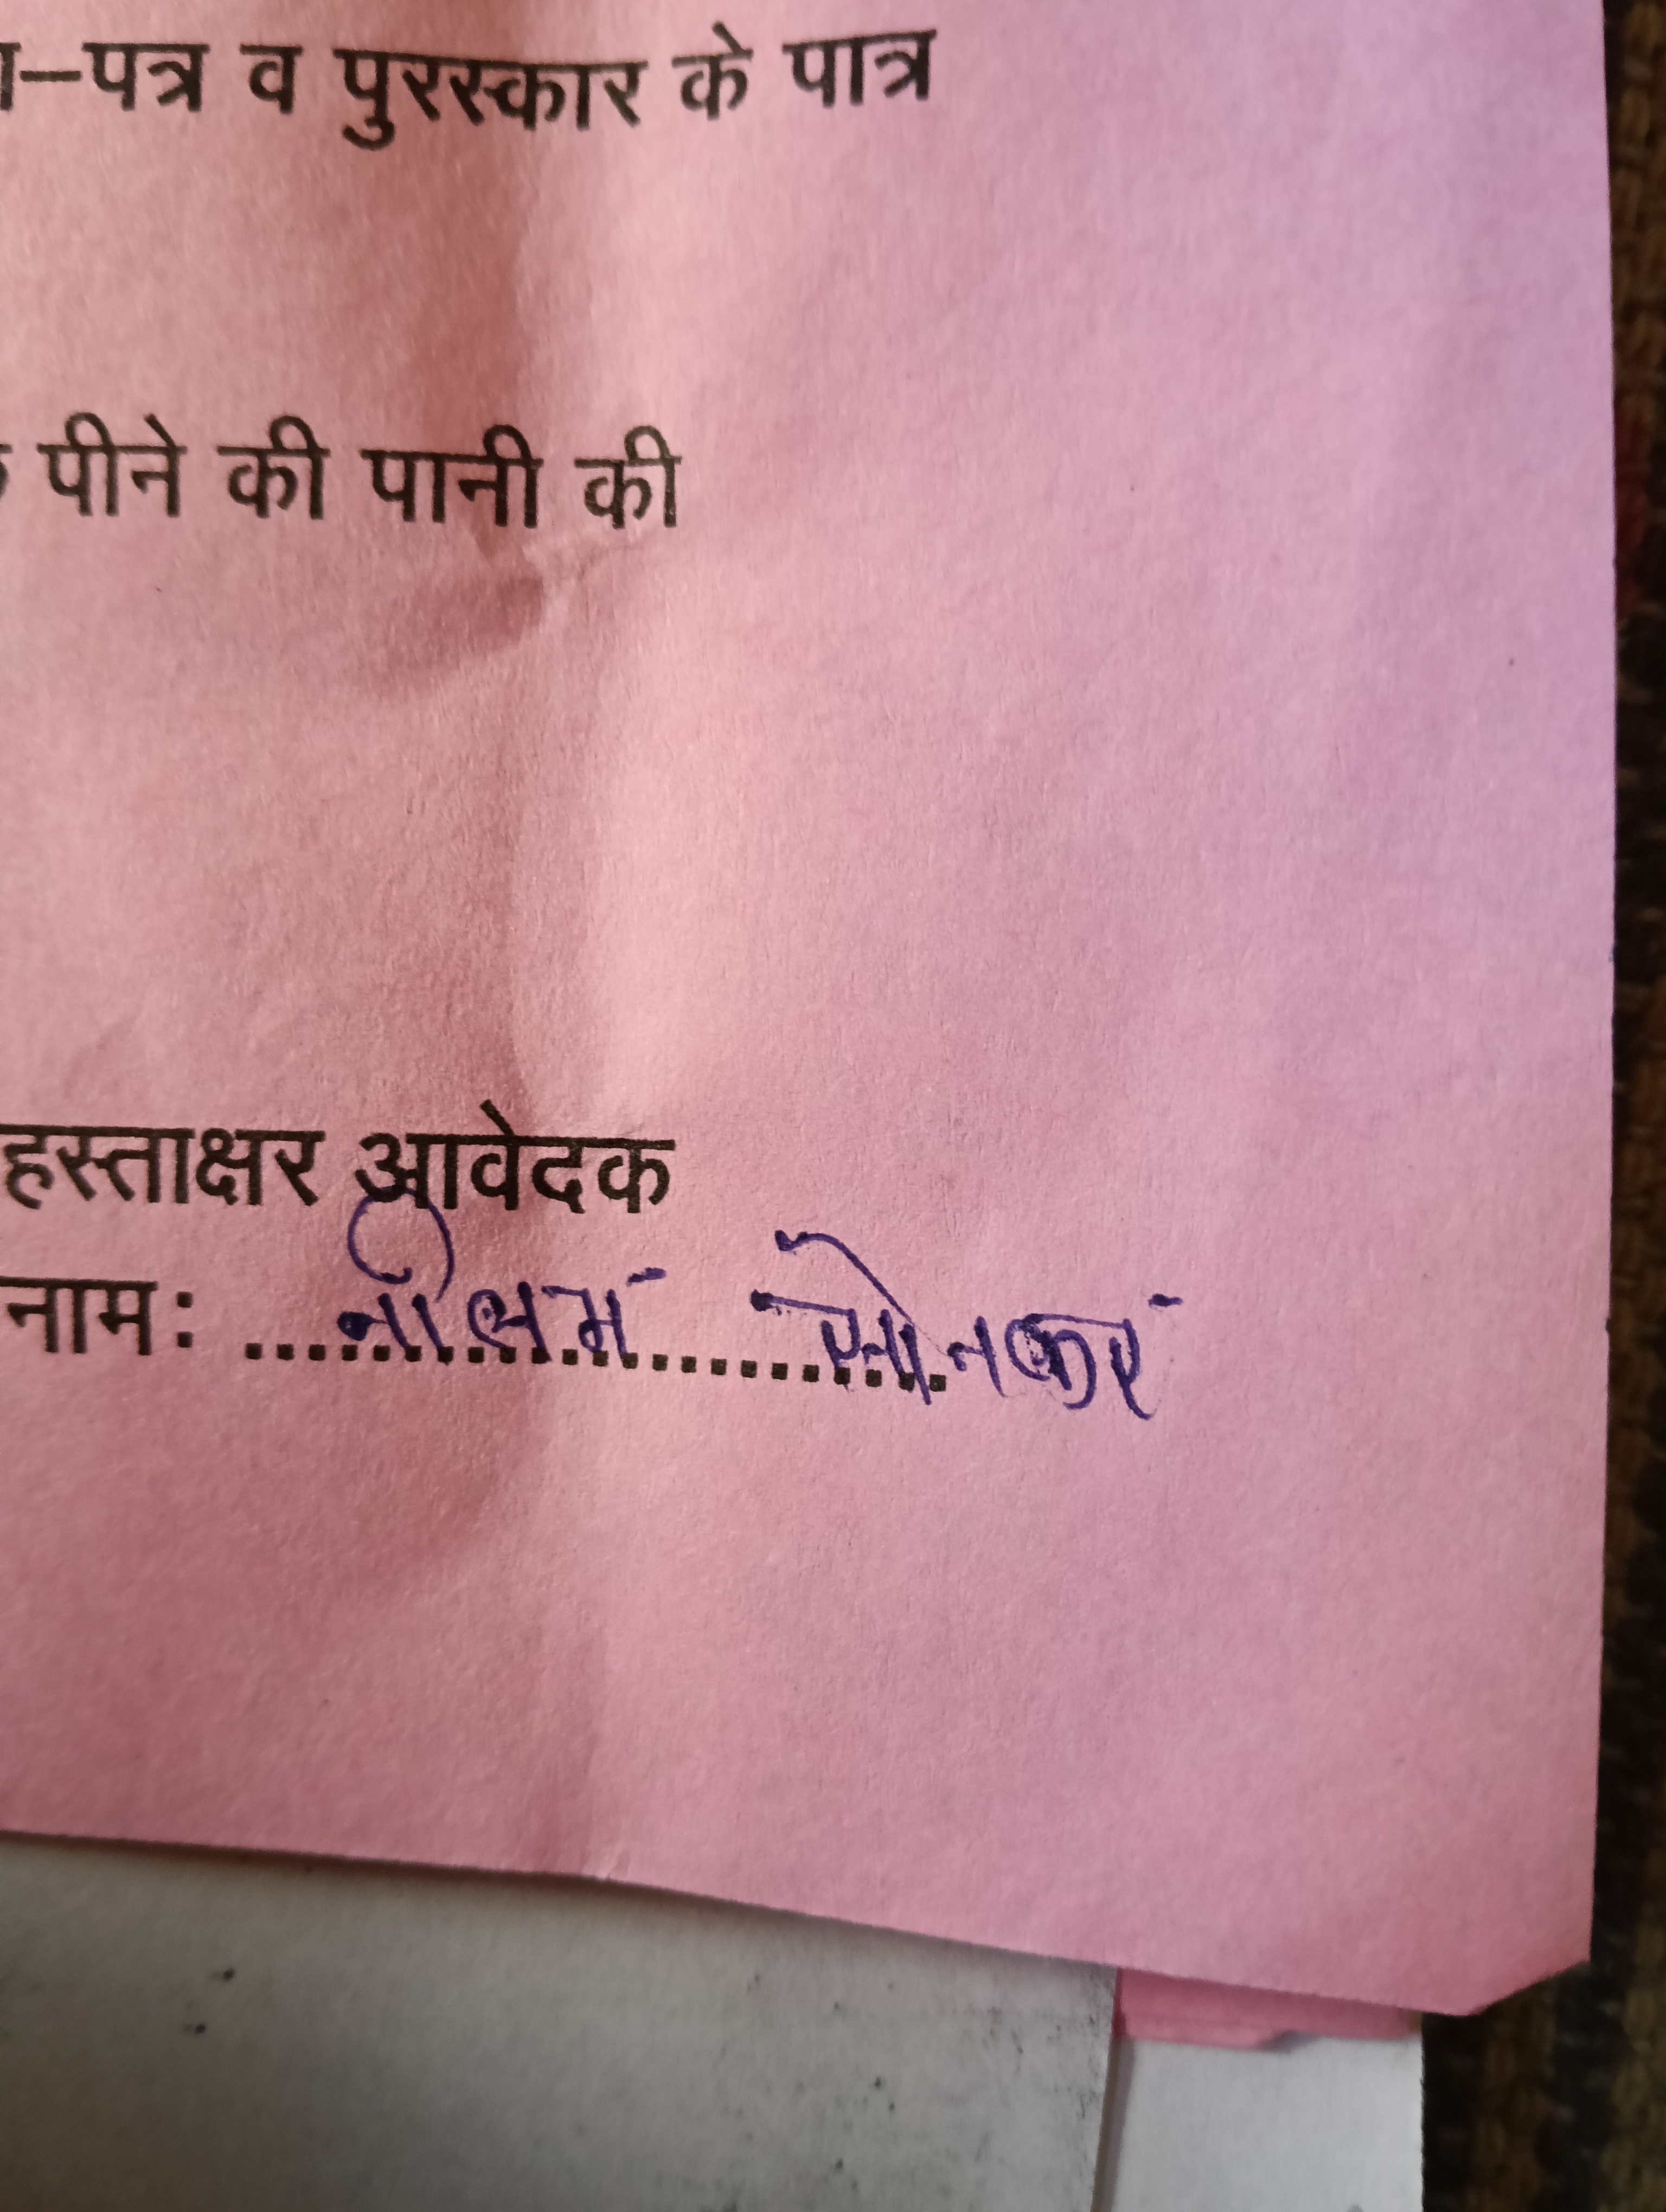 –पत्र व पुरस्कार के पात्र
पीने की पानी की
हस्ताक्षर आवेदक
नाम: .................. नीलम सोनकर